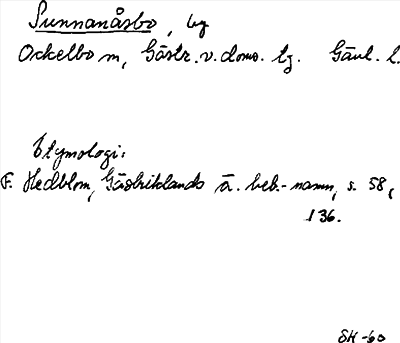 Sunnanåsbo, by
Ockelbo sn, Gästr. v. doms. tg. Gävl. l.
Etymologi:
F. Hedblom, Gästriklands ä. beb.-namn, s. 58,
136.
SH -60